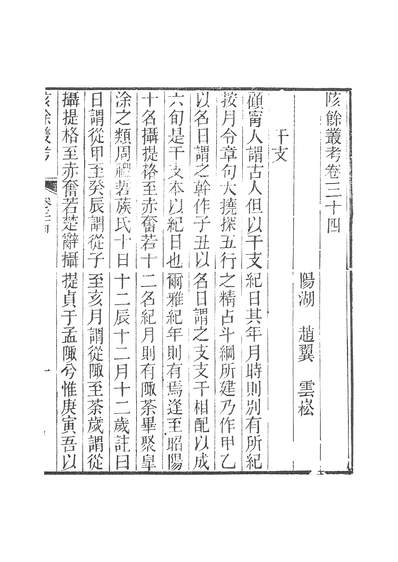 陔餘叢考卷三十四
陽湖 趙翼 雲崧
干支
顧甯人謂古人但以干支紀日其年月時則別有所紀
按月令章句大撓探五行之精占斗綱所建乃作甲乙
以名日謂之幹作子丑以名日謂之支支干相配以成
六旬是干支本以紀日也爾雅紀年則有焉逢至昭陽
十名攝提格至赤奮若十二名紀月則有陬荼畢聚皐
涂之類周禮硩蔟氏十日十二辰十二月十二歲註曰
日謂從甲至癸辰謂從子至亥月謂從陬至荼歲謂從
攝提格至赤奮若楚辭攝提貞于孟陬兮惟庚寅吾以
陔餘叢考
卷三十四
一